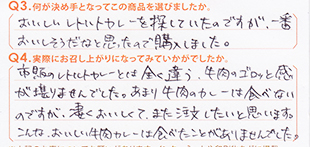 Q3.何が決め手となってこの商品を選びましたか。
おいしいレトルトカレーを探していたのですが、一番
おいしそうだなと思ったので購入しました。
Q4.実際にお召し上がりになってみていかがでしたか。
市販のレトルトカレーとは全く違う、牛肉のゴロッと感
が堪りませんでした。あまり牛肉のカレーは食べない
のですが、凄くおいしくて、また注文したいと思います。
こんな、おいしい牛肉カレーは食べたことがありませんでした。